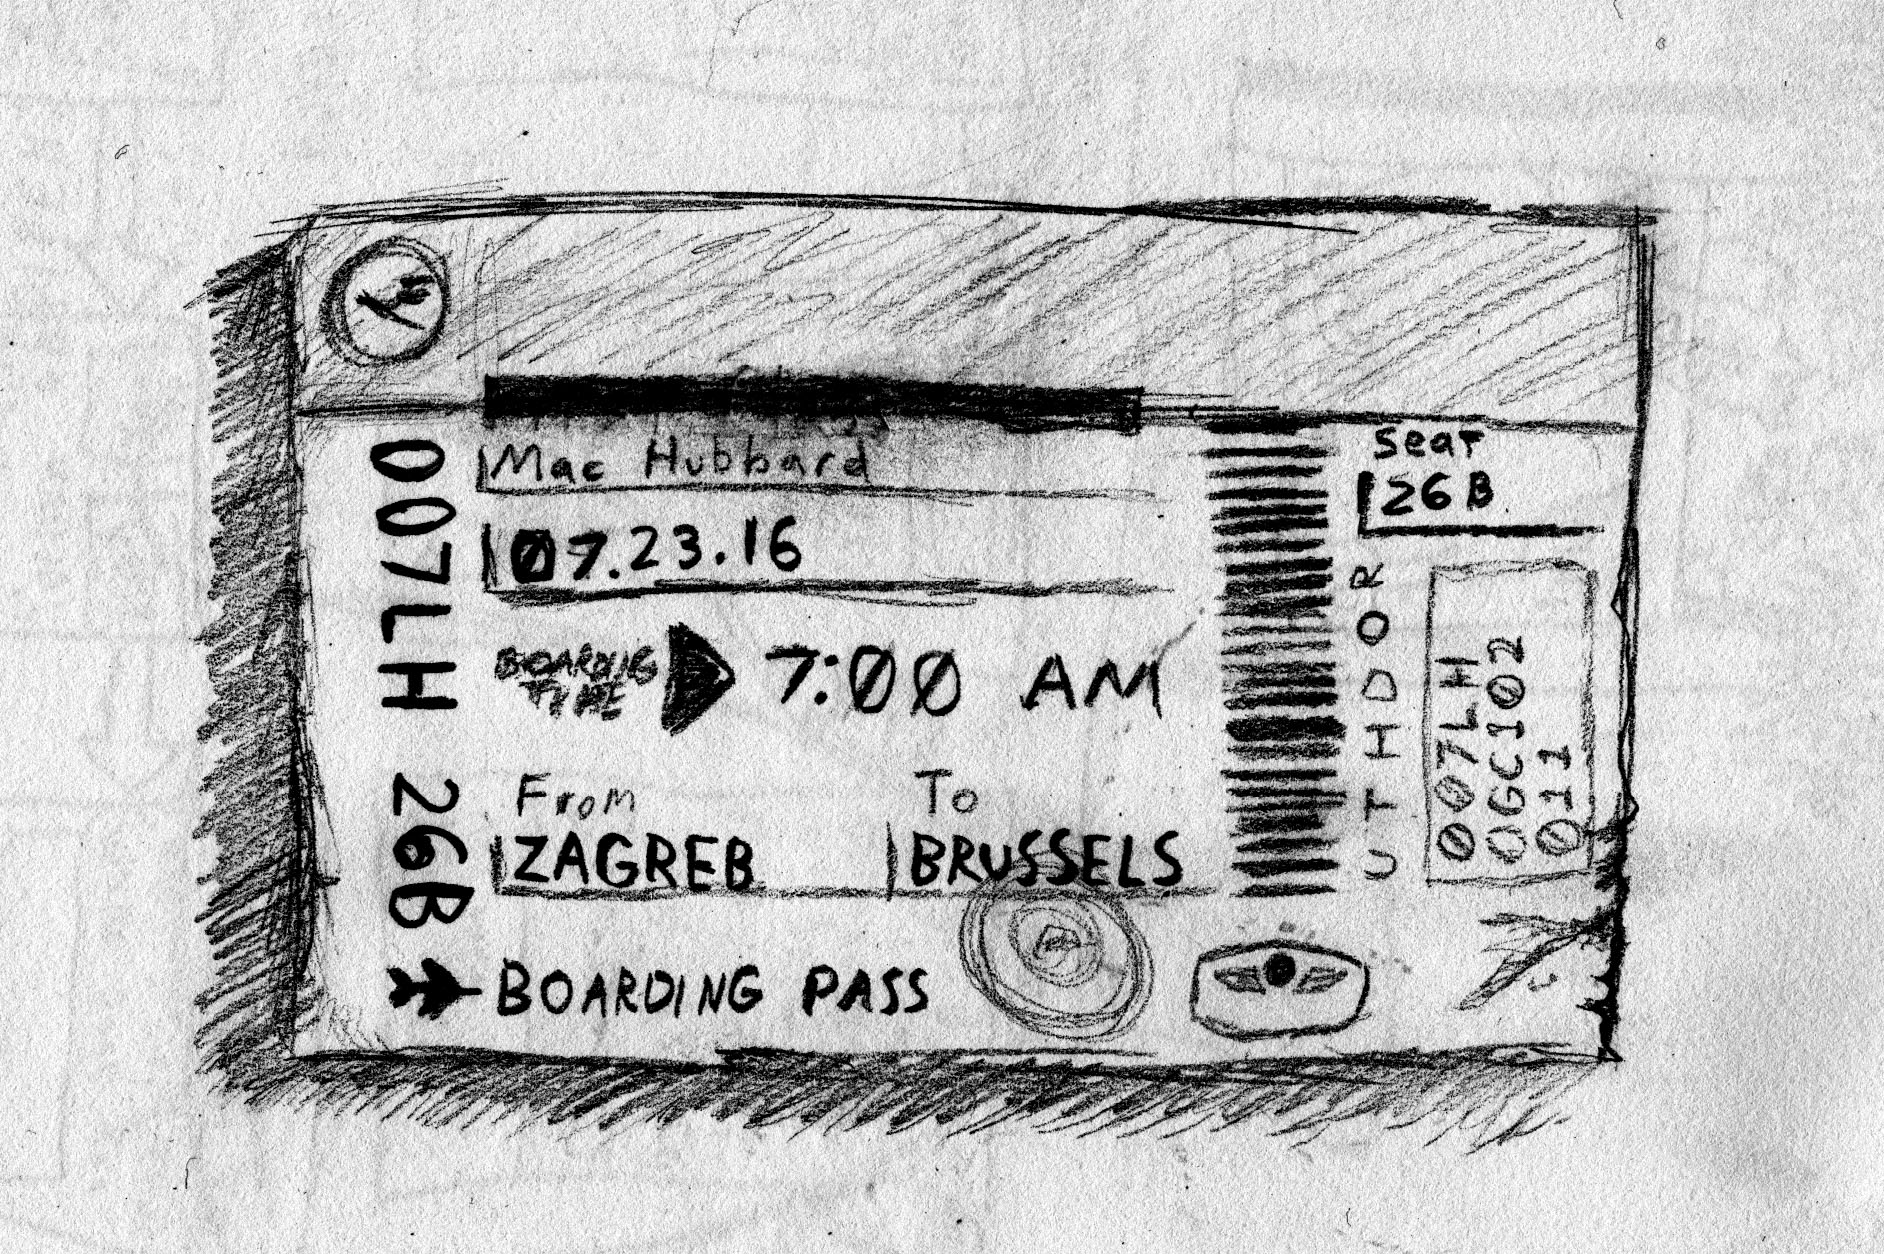 Mac Hubbard
07.23.16
BOARDING TIME
7:00 AM
From
ZAGREB
To
BRUSSELS
BOARDING PASS
007LH 26B
Seat
26B
UTHDOR
007LH
0GC102
011